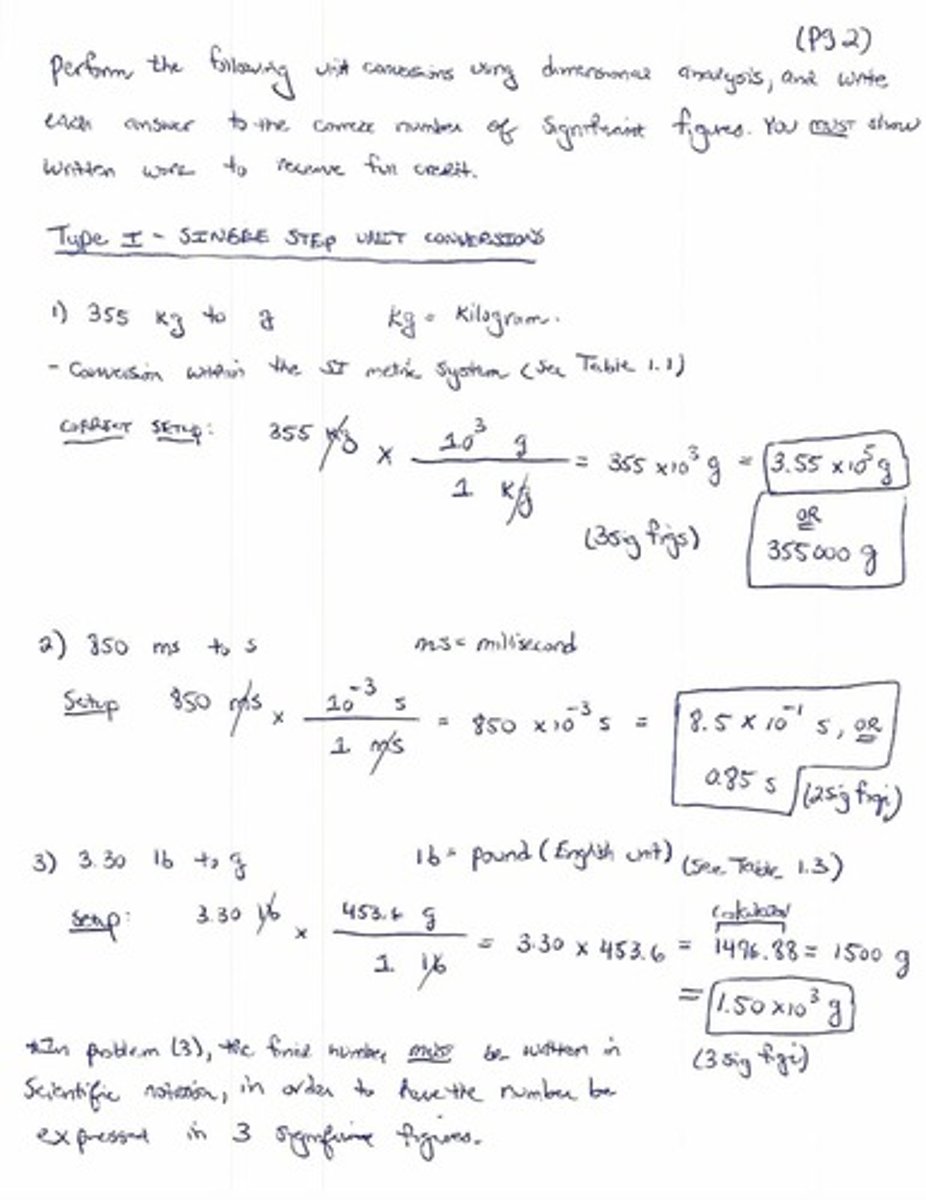 (Pg 2)
Perform the following unit conversions using dimensional analysis, and write
each answer to the correct number of significant figures. You MUST show
written work to receive full credit.
Type I - SINGLE STEP UNIT CONVERSIONS
1) 355 kg to g kg = kilogram.
- Conversion within the SI metric system (See Table 1.1)
CORRECT SETUP: 355 kg × 10³ g / 1 kg = 355 x10³ g = 3.55 x10⁵ g
(3 sig figs) OR
355000 g
2) 850 ms to s ms = millisecond
Setup 850 ms × 10⁻³ s / 1 ms = 850 x10⁻³ s = 8.5 x 10⁻¹ s, OR
0.85 s (2 sig figs)
3) 3.30 lb to g lb = pound (English unit) (See Table 1.3)
Setup: 3.30 lb × 453.6 g / 1 lb = 3.30 x 453.6 = 1496.88 = 1500 g
calculator
= 1.50 x10³ g
(3 sig figs)
*In problem (3), the final number must be written in
Scientific notation, in order to have the number be
expressed in 3 significant figures.